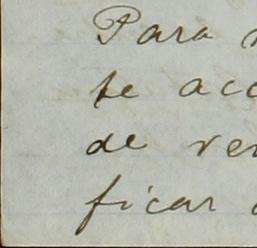 Para
te acc
de ver
ficar